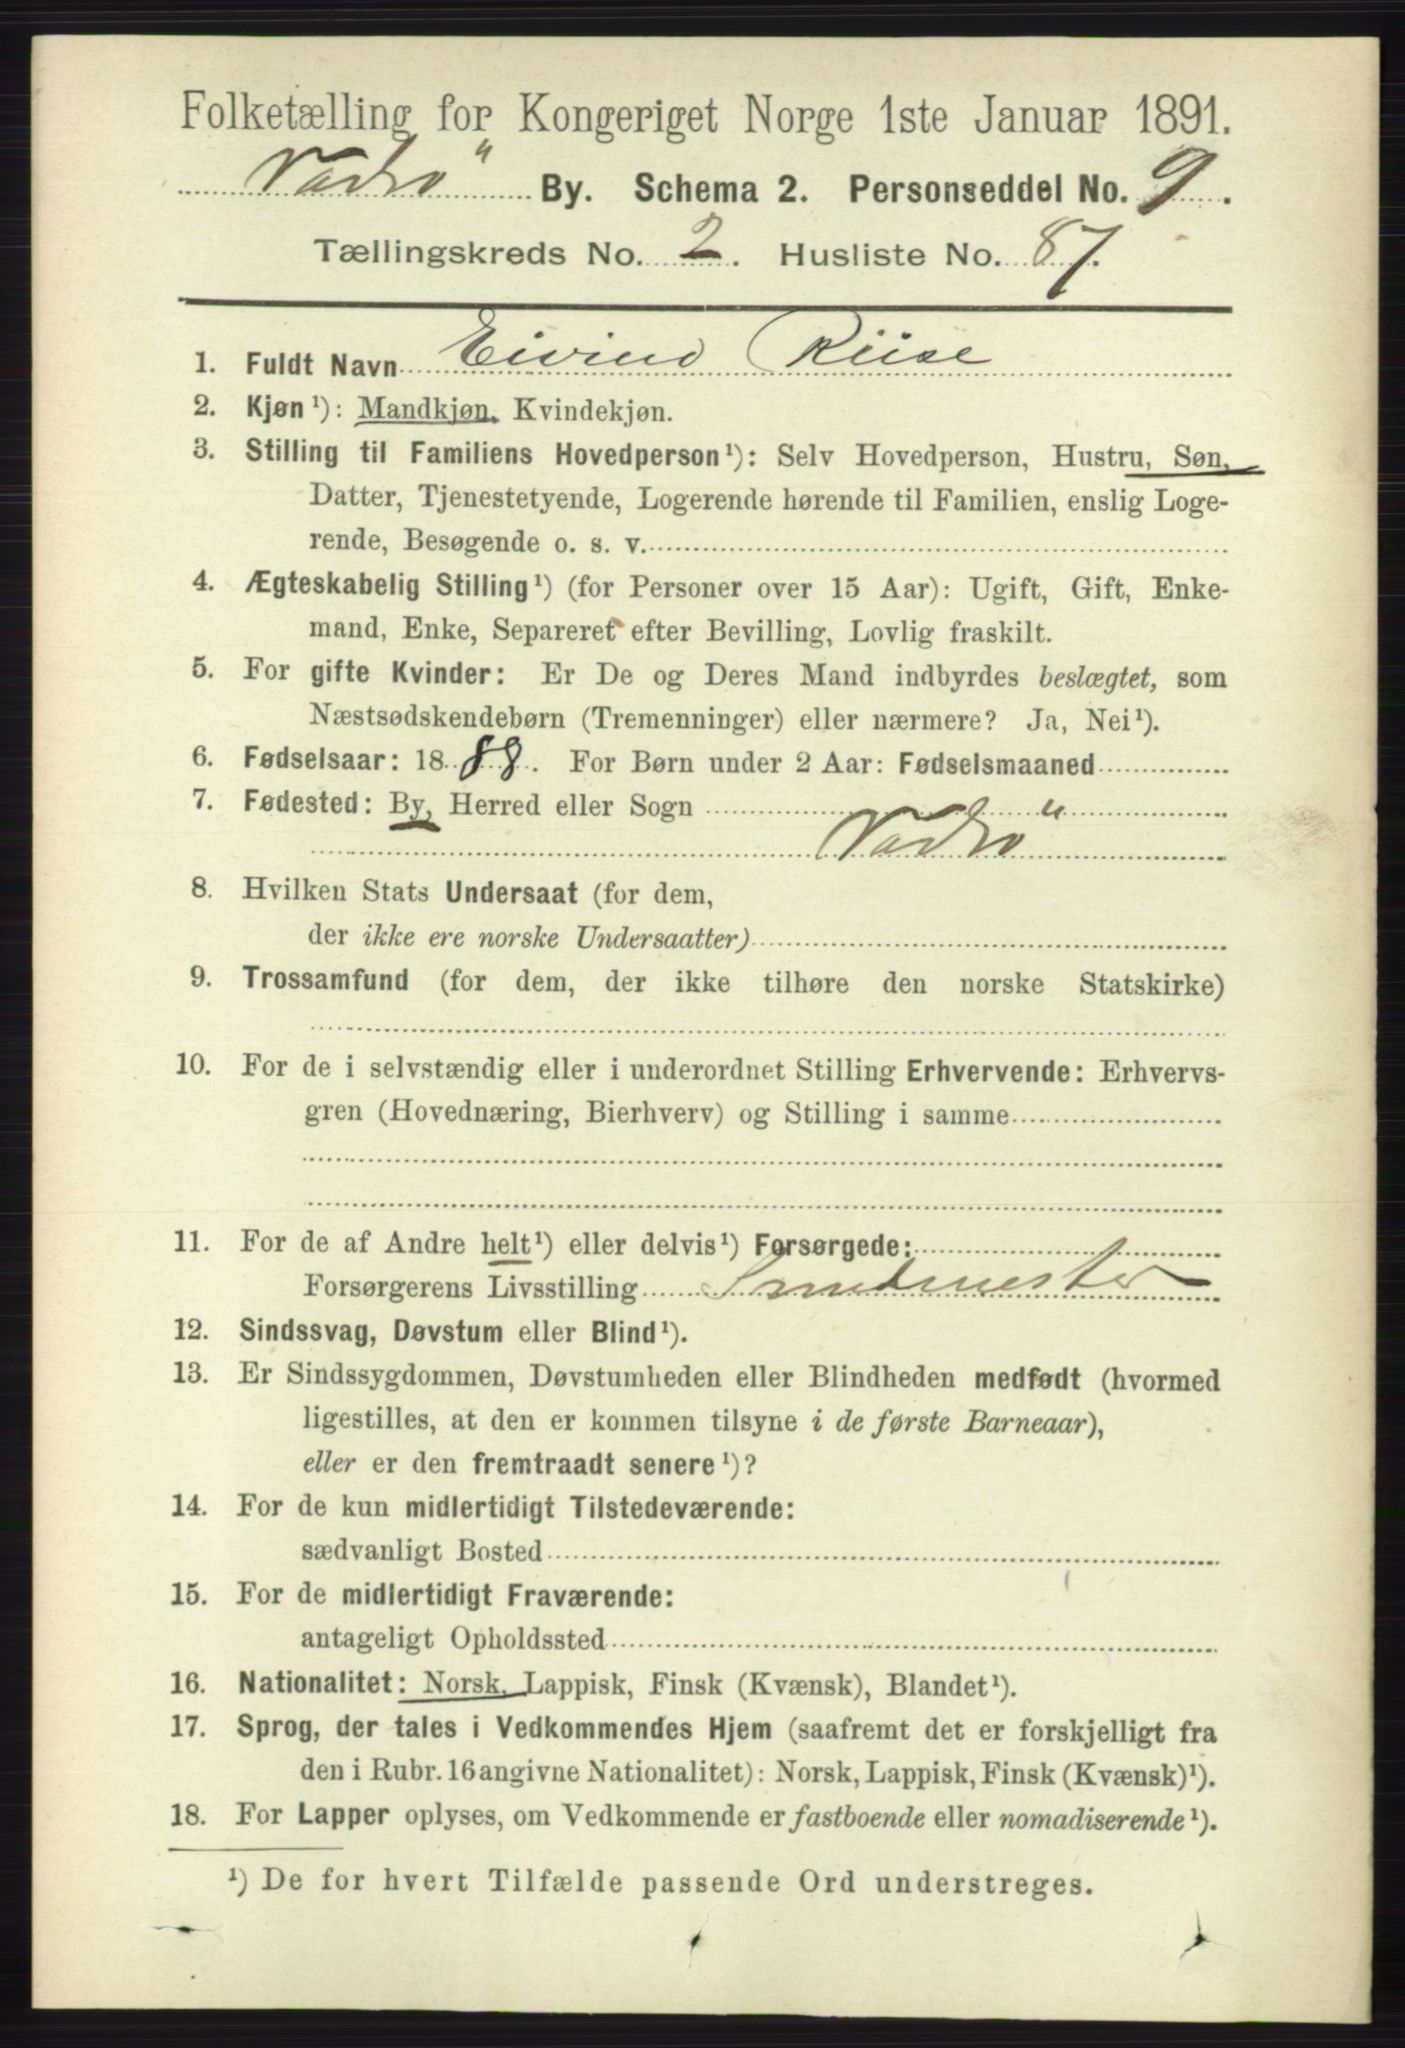 Folketælling for Kongeriget Norge 1ste Januar 1891.
Vadsö By. Schema 2. Personseddel No. 9.
Tællingskreds No. 2. Husliste No. 87.
1. Fuldt Navn Eivind Riise
2. Kjøn¹): Mandkjøn, Kvindekjøn.
3. Stilling til Familiens Hovedperson¹): Selv Hovedperson, Hustru, Søn,
Datter, Tjenestetyende, Logerende hørende til Familien, enslig Loge-
rende, Besøgende o. s. v.
4. Ægteskabelig Stilling¹) (for Personer over 15 Aar): Ugift, Gift, Enke-
mand, Enke, Separeret efter Bevilling, Lovlig fraskilt.
5. For gifte Kvinder: Er De og Deres Mand indbyrdes beslægtet, som
Næstsødskendebørn (Tremenninger) eller nærmere? Ja, Nei¹).
6. Fødselsaar: 1888. For Børn under 2 Aar: Fødselsmaaned
7. Fødested: By, Herred eller Sogn
Vadsö
8. Hvilken Stats Undersaat (for dem,
der ikke ere norske Undersaatter)
9. Trossamfund (for dem, der ikke tilhøre den norske Statskirke)
10. For de i selvstændig eller i underordnet Stilling Erhvervende: Erhvervs-
gren (Hovednæring, Bierhverv) og Stilling i samme
11. For de af Andre helt¹) eller delvis¹) Forsørgede:
Forsørgerens Livsstilling Smedmester
12. Sindssvag, Døvstum eller Blind¹).
13. Er Sindssygdommen, Døvstumheden eller Blindheden medfødt (hvormed
ligestilles, at den er kommen tilsyne i de første Barneaar),
eller er den fremtraadt senere¹)?
14. For de kun midlertidigt Tilstedeværende:
sædvanligt Bosted
15. For de midlertidigt Fraværende:
antageligt Opholdssted
16. Nationalitet: Norsk, Lappisk, Finsk (Kvænsk), Blandet¹).
17. Sprog, der tales i Vedkommendes Hjem (saafremt det er forskjelligt fra
den i Rubr. 16 angivne Nationalitet): Norsk, Lappisk, Finsk (Kvænsk)¹).
18. For Lapper oplyses, om Vedkommende er fastboende eller nomadiserende¹).
¹) De for hvert Tilfælde passende Ord understreges.